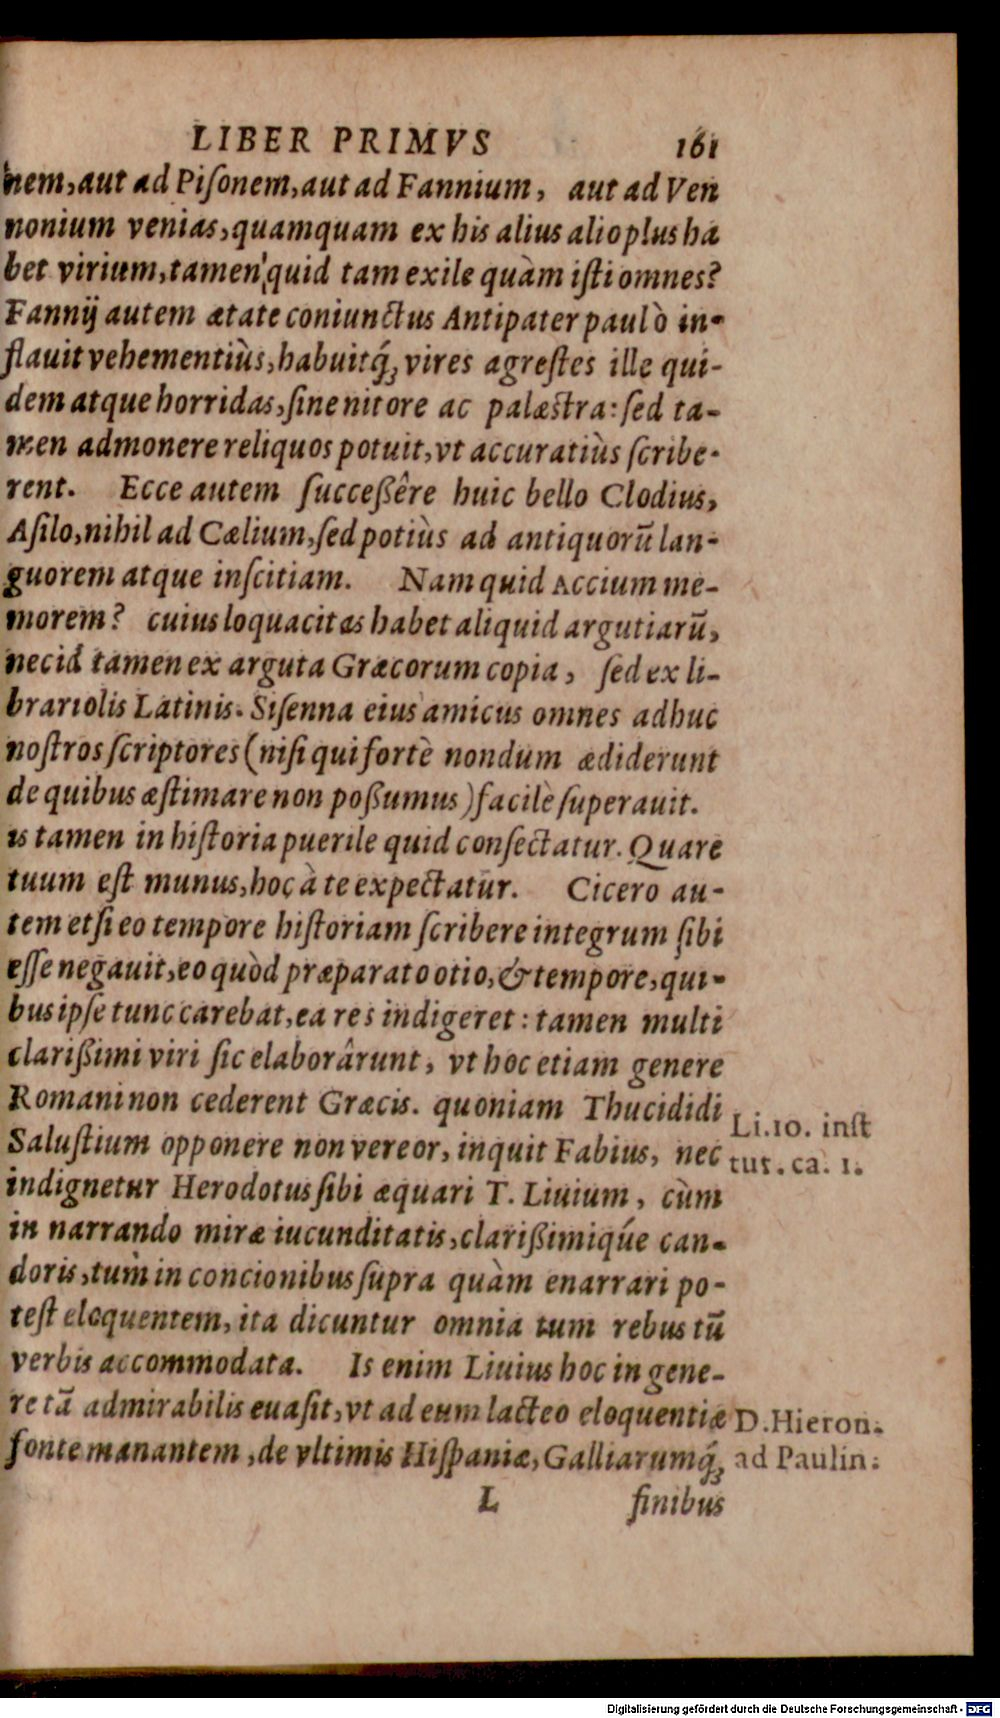 LIBER PRIMVS 161
nem,aut ad Piſonem,aut ad Fannium, aut ad Ven
nonium venias,quamquam ex his alius alio plus ha
bet virium,tamen quid tam exile quàm iſti omnes?
Fannij autem ætate coniunctus Antipater paulò in-
flauit vehementiùs,habuitq́ꝫ vires agreſtes ille qui-
dem atque horridas,ſine nitore ac palæstra:ſed ta-
men admonere reliquos potuit,vt accuratiùs ſcribe-
rent. Ecce autem ſucceßêre huic bello Clodius,
Aſilo,nihil ad Cælium,ſed potiùs ad antiquorũ lan-
guorem atque inſcitiam. Nam quid Accium me-
morem? cuius loquacitas habet aliquid argutiarũ,
nec id tamen ex arguta Græcorum copia, ſed ex li-
brariolis Latinis. Siſenna eius amicus omnes adhuc
noſtros ſcriptores (niſi qui fortè nondum ædiderunt
de quibus æſtimare non poßumus) facilè ſuperauit.
is tamen in hiſtoria puerile quid conſectatur. Quare
tuum eſt munus,hoc à te expectatur. Cicero au-
tem etſi eo tempore hiſtoriam ſcribere integrum ſibi
eſſe negauit,eo quòd præparato otio,& tempore,qui-
bus ipſe tunc carebat,ea res indigeret: tamen multi
clarißimi viri ſic elaborârunt, vt hoc etiam genere
Romani non cederent Græcis. quoniam Thucididi
Saluſtium opponere non vereor, inquit Fabius, nec
indignetur Herodotus ſibi æquari T. Liuium, cùm
in narrando miræ iucunditatis,clarißimiqúe can-
doris,tum in concionibus ſupra quàm enarrari po-
teſt eloquentem, ita dicuntur omnia tum rebus tũ
verbis accommodata. Is enim Liuius hoc in gene-
re tã admirabilis euaſit,vt ad eum lacteo eloquentiæ
fonte manantem,de vltimis Hiſpaniæ,Galliarumq́ꝫ
L finibus
Li.10. inſt
tut. ca. 1.
D.Hieron.
ad Paulin.
Digitalisierung gefördert durch die Deutsche Forschungsgemeinschaft - DFG